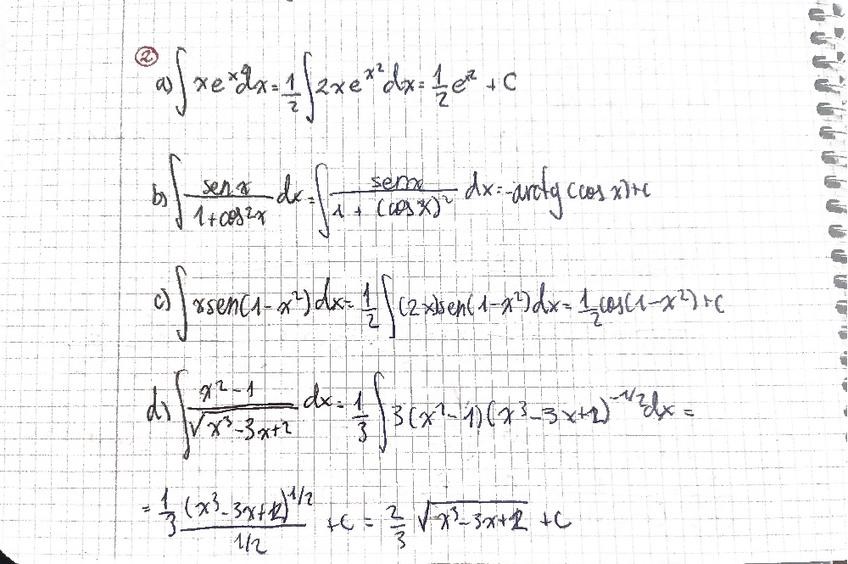 ②
a) ∫ x e^{x^2} dx = 1/2 ∫ 2x e^{x^2} dx = 1/2 e^{x^2} + C
b) ∫ sen x / (1 + cos^2 x) dx = ∫ sen x / (1 + (cos x)^2) dx = -arctg (cos x) + C
c) ∫ x sen(1 - x^2) dx = 1/2 ∫ (2x) sen(1 - x^2) dx = 1/2 cos(1 - x^2) + C
d) ∫ (x^2 - 1) / √(x^3 - 3x + 2) dx = 1/3 ∫ 3(x^2 - 1)(x^3 - 3x + 2)^{-1/2} dx =
= 1/3 (x^3 - 3x + 2)^{1/2} / (1/2) + C = 2/3 √(x^3 - 3x + 2) + C